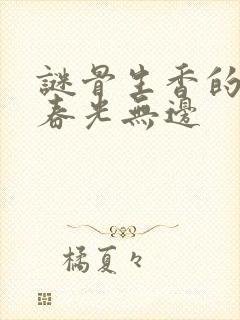 謎骨生香的
春光無邊
橘夏々